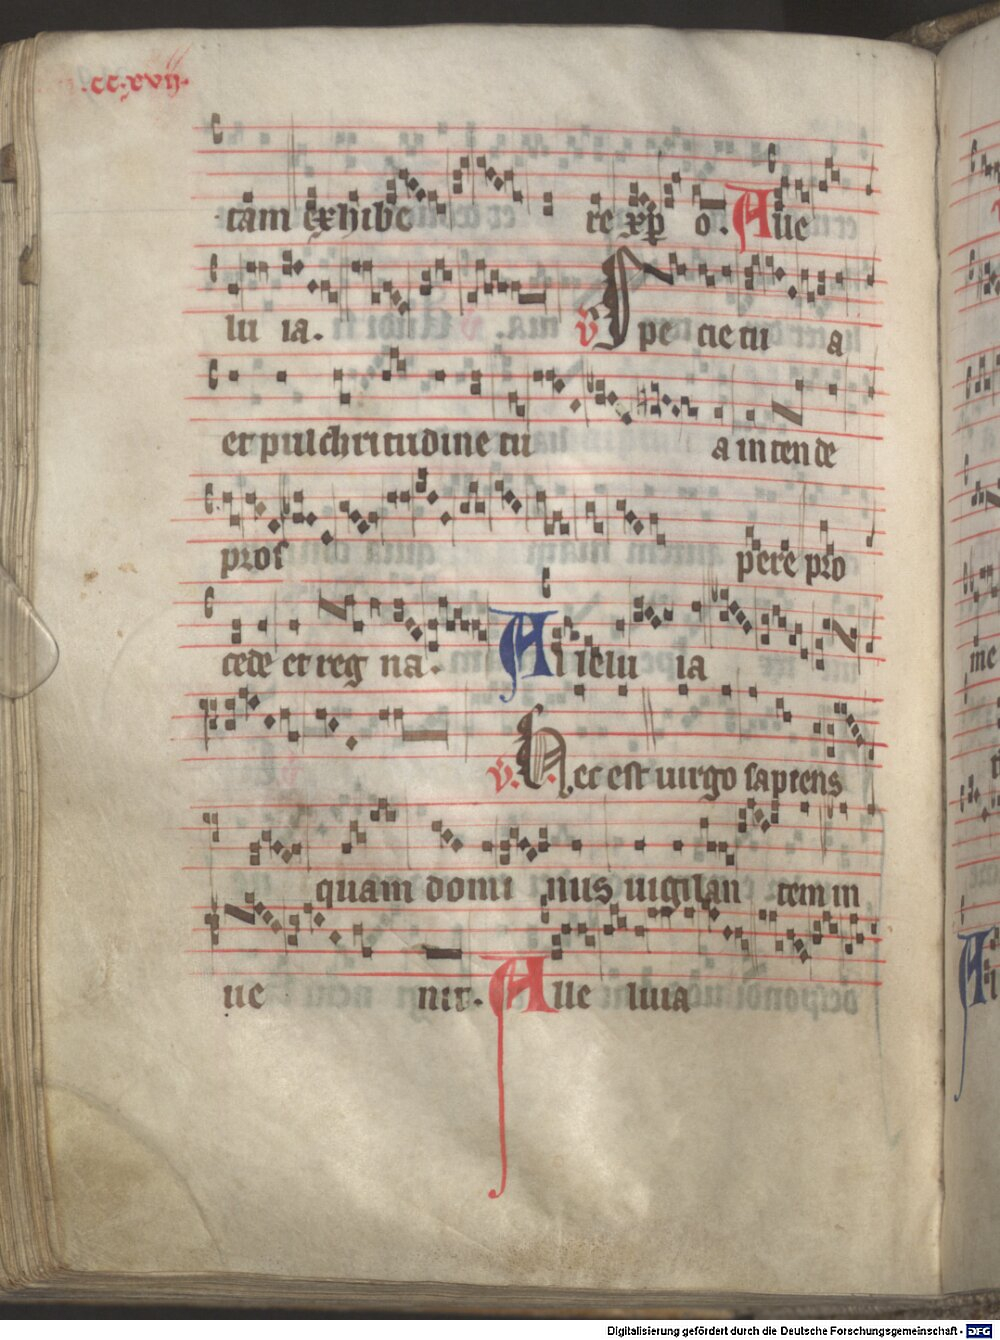 .cc.xvij.
tam exhibe re xp̄ o. Alle
lu ia. v Spe cie tu a
et pulchritudine tu a in ten de
pros pere pro
cede et reg na. Al lelu ia
v. Hec est uirgo sapiens
quam domi nus uigilan tem in
ue nit. Alle luia
me
Digitalisierung gefördert durch die Deutsche Forschungsgemeinschaft - DFG